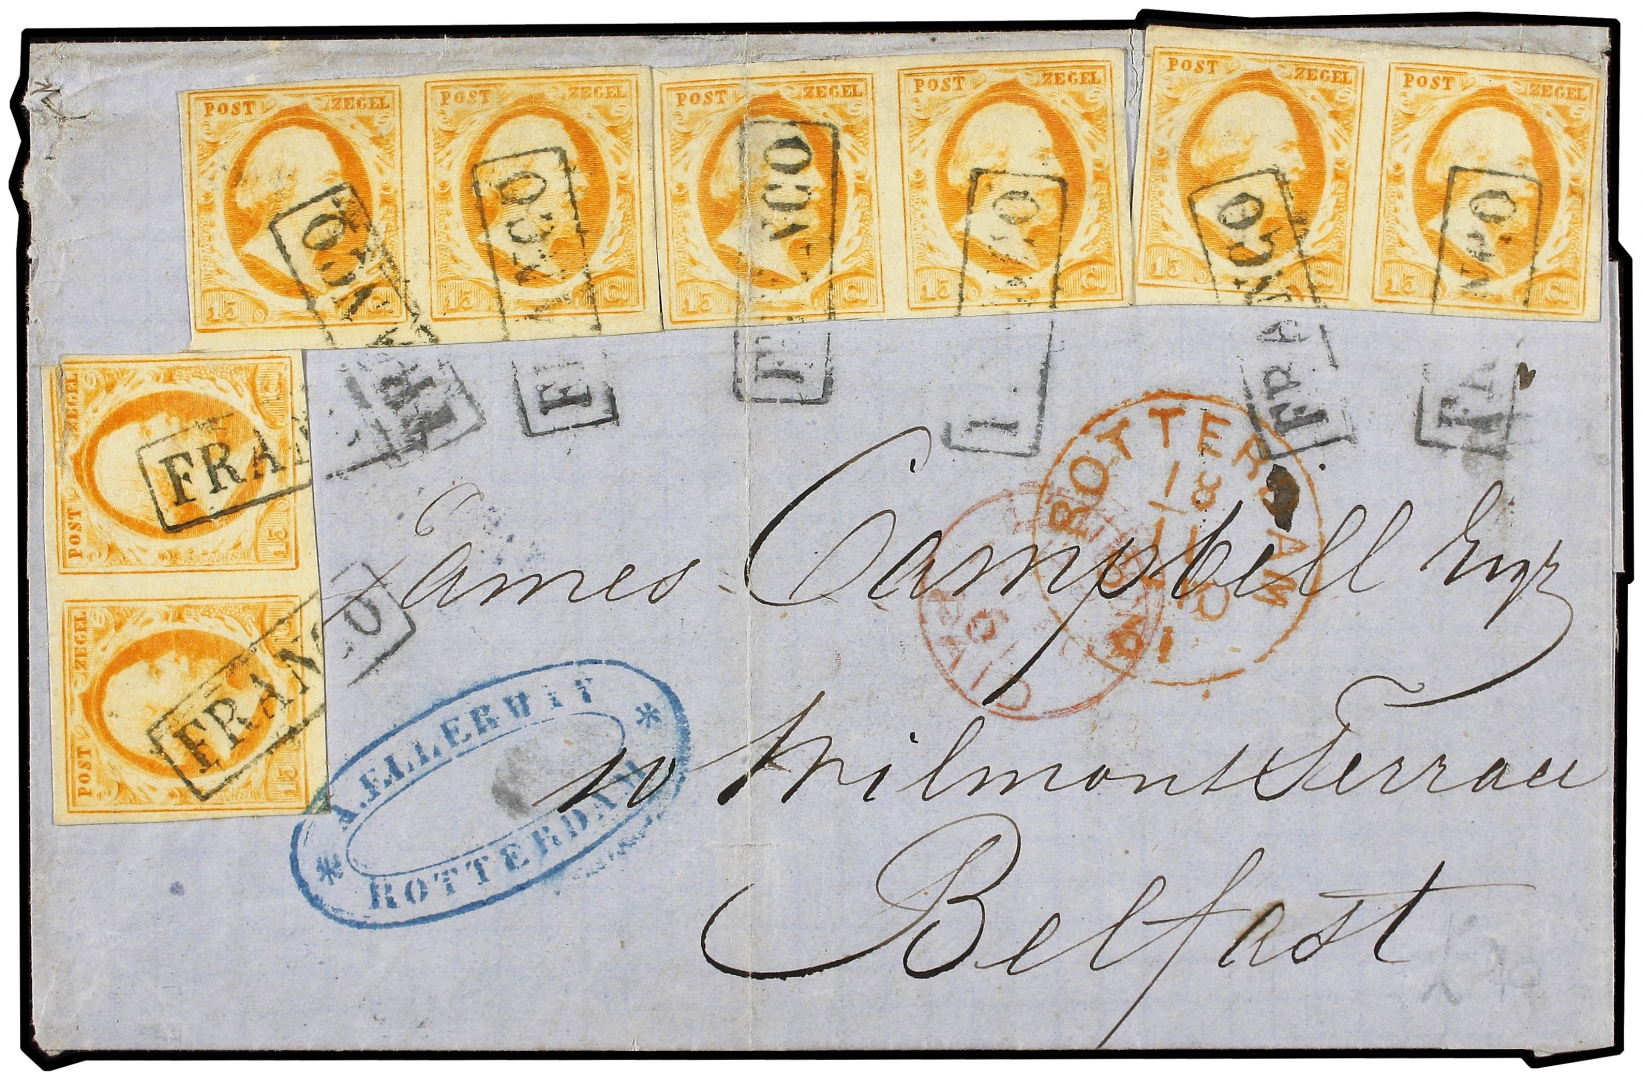 POST ZEGEL POST ZEGEL POST ZEGEL POST ZEGEL POST ZEGEL POST ZEGEL
FRANCO FRANCO FRANCO FRANCO FRANCO
15 C. 15 C. 15 C. 15 C. 15 C. 15 C.
POST ZEGEL
15
FRAN
POST ZEGEL
15
FRANCO
ROTTERDAM
18
11
61
James Campbell Esqr
10 Wilmont Terrace
Belfast
A. ELLERWIT
ROTTERDAM